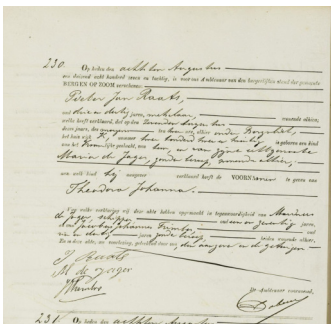 230. Op heden den achtsten Augustus
een duizend acht honderd zeven en tachtig, is voor ons Ambtenaar van den burgerlijken stand der gemeente
BERGEN OP ZOOM verschenen:
Pieter Jan Raats,
oud drie en dertig jaren, metselaar, wonende alhier;
welke heeft verklaard, dat op den zevenden Augustus
dezes jaars, des morgens ten uur, alhier
in het huis wijk nummer twee honderd twee en twintig, is geboren een kind
van het geslacht, van hem, en van zijne echtgenoote
Maria de Jager, zonder beroep, wonende alhier,
aan welk kind hij aangever verklaard heeft de VOORNamen te geven van
Theodora Johanna.
Van welke verklaring wij deze akte hebben opgemaakt in tegenwoordigheid van Marinus
de Jager, schipper, oud een en zeventig jaren,
en Jacobus Johannes oud
en dertig jaren, zonder beroep, beiden wonende alhier.
En is deze akte, na voorlezing, geteekend door ons, den aangever en de getuigen
P. J. Raats
M de Jager
De Ambtenaar voornoemd,
231 Op heden den achtsten Augustus